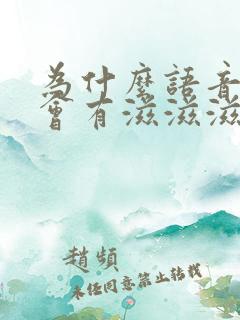 為什麼語音
會有滋滋滋
趙頻
未經同意禁止轉載